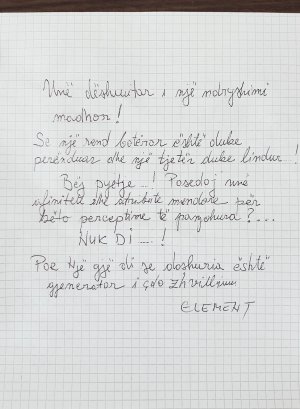 Unë dëshmitar i një ndryshimi
madhor!
Se një rend botëror është duke
perënduar dhe një tjetër duke lindur!
Bëj pyetje...! Posedoj unë
afinitet dhe atribute mendore për
këto perceptime të panjohura?...
NUK DI....!
Por Një gjë di se dashuria është
gjenerator i çdo zhvillimi
ELEMENT